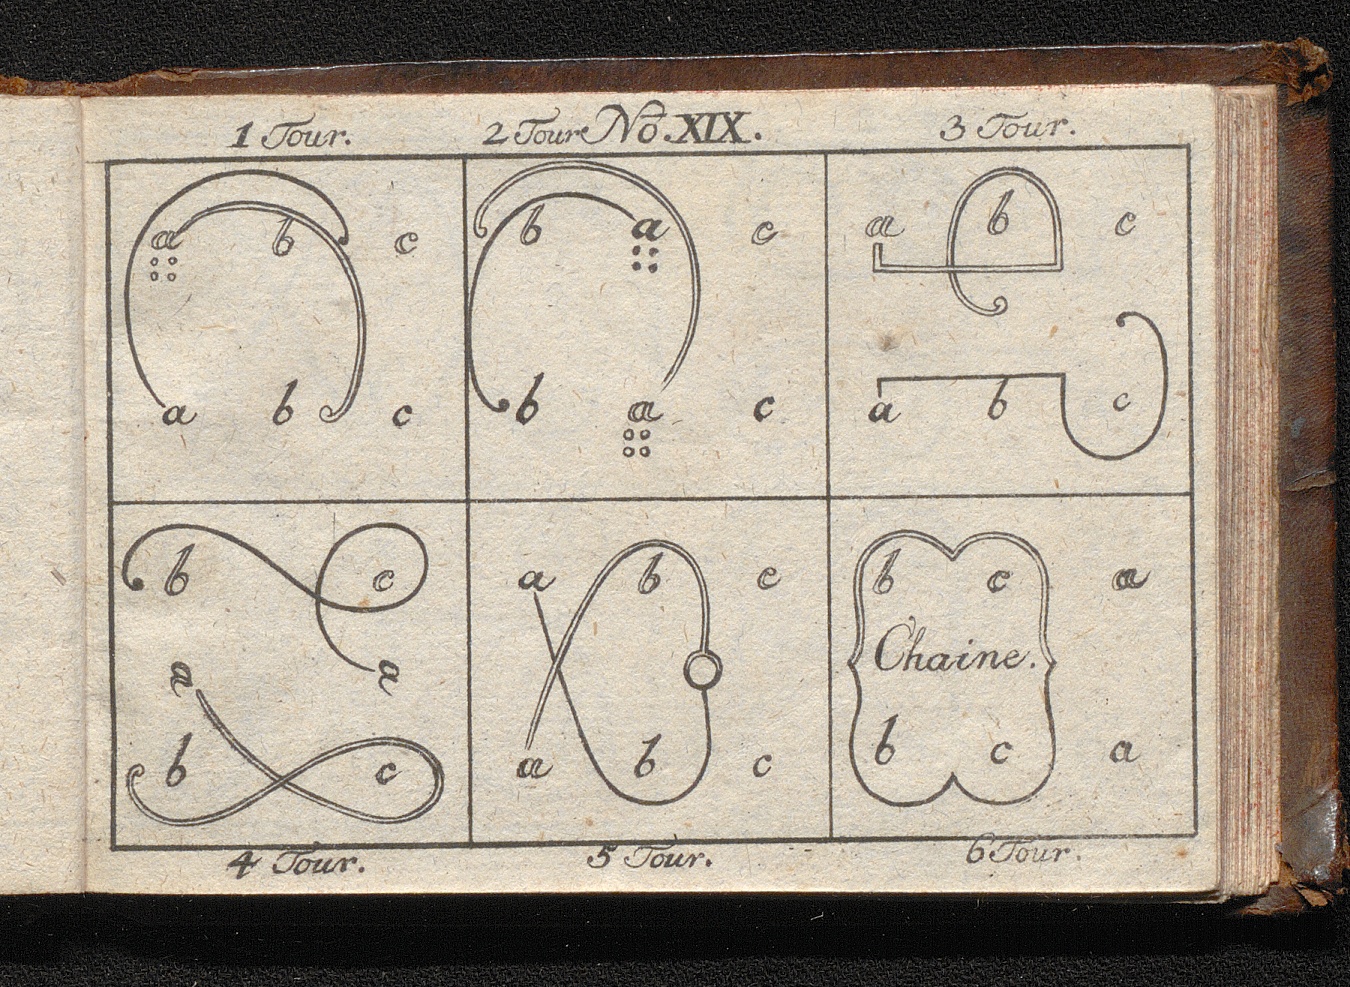 1 Tour. 2 Tour No. XIX. 3 Tour.
a b c b a c a b c
a b c b a c a b c
b c a b c b c a
a a Chaine.
b c a b c b c a
4 Tour. 5 Tour. 6 Tour.